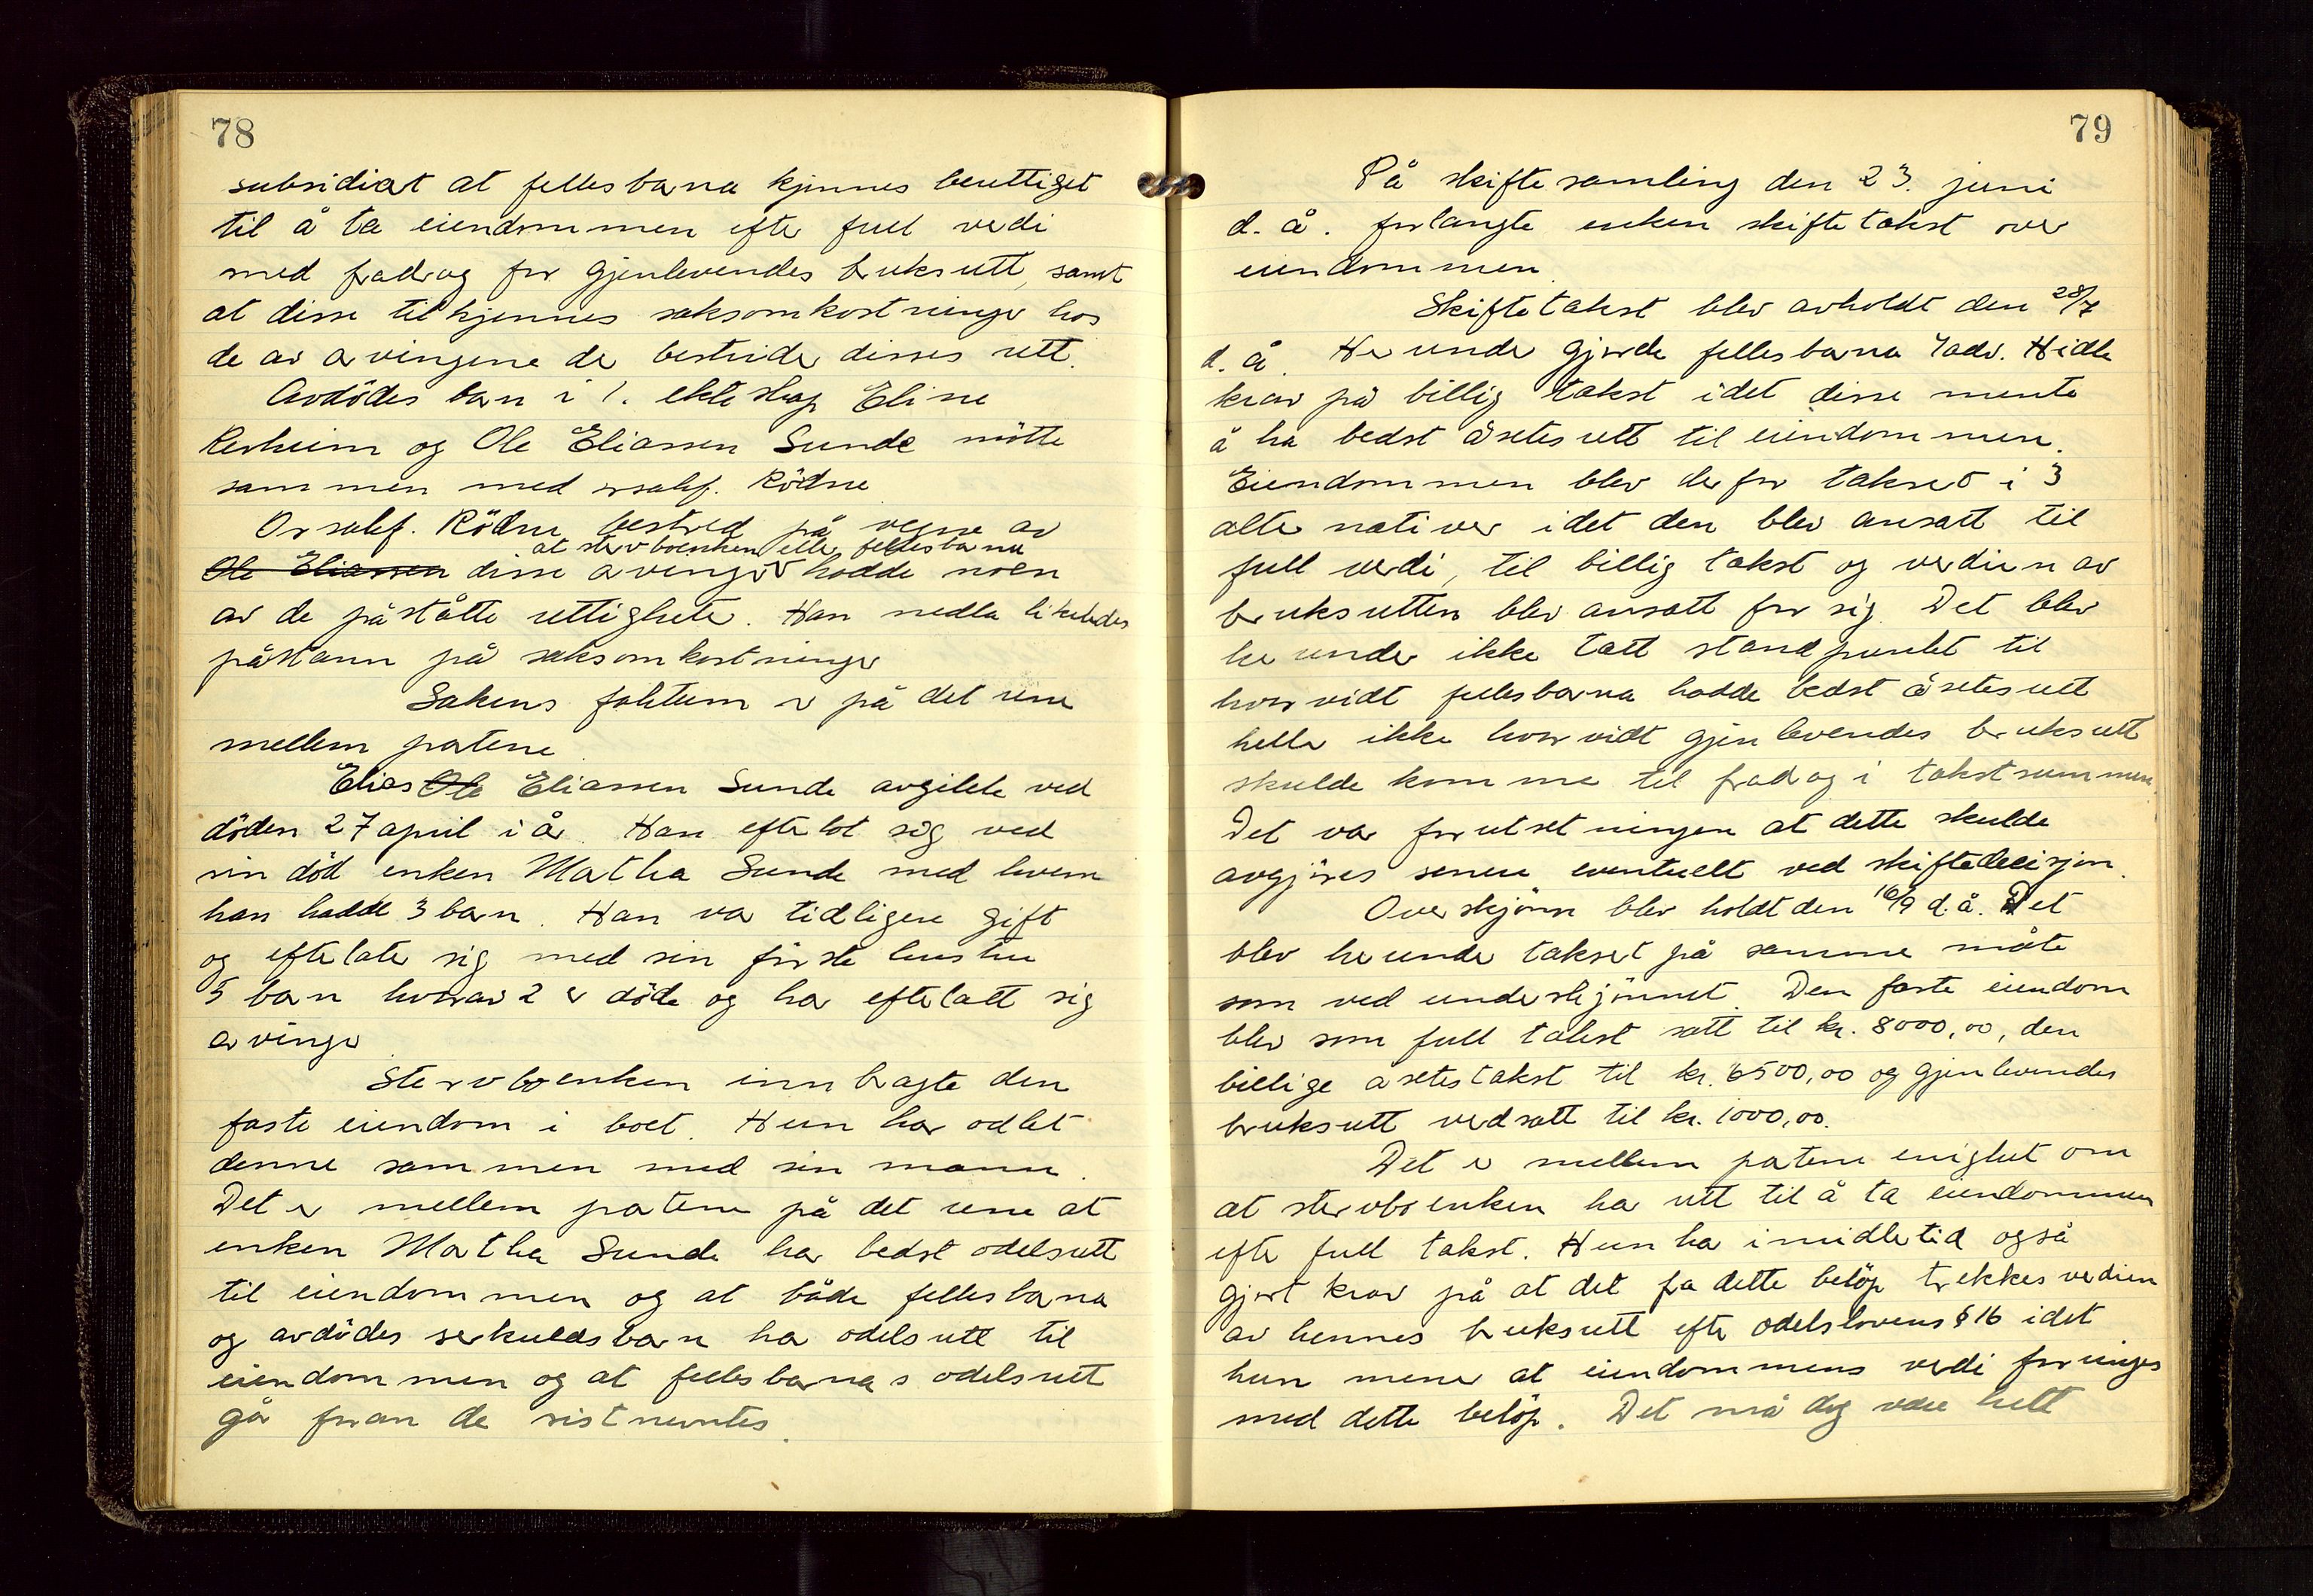 78
subsidiært at fellesbarna kjennes berettiget
til å ta eiendommen efter full verdi
med fradrag for gjenlevendes bruksrett, samt
at disse tilkjennes saksomkostninger hos
de av arvingene der bestrider disses rett.
Avdödes barn i 1. ekteskap Eline
og Ole Eliassen Sunde mötte
sammen med orsakf. Rödne
Orsakf. Rödne bestred på vegne av
at stervboenken eller fellesbarna
Ole Eliassen disse arvinger hadde noen
av de påståtte rettigheter. Han nedla likeledes
påstann på saksomkostninger
Sakens faktum er på det rene
mellem partene
Elias Ole Eliassen Sunde avgikk ved
döden 27 april i år. Han efterlot sig ved
sin död enken Martha Sunde med hvem
han hadde 3 barn. Han var tidligere gift
og efterlater sig med sin förste hustru
5 barn hvorav 2 er döde og har efterlatt sig
arvinger
Stervboenken innbragte den
faste eiendom i boet. Hun har odlet
denne sammen med sin mann.
Det er mellem partene på det rene at
enken Martha Sunde har bedst odelsrett
til eiendommen og at både fellesbarna
og avdödes serkuldsbarn har odelsrett til
eiendommen og at fellesbarnas odelsrett
går foran de sistnevntes.
79
På skiftesamling den 23. juni
d. å. forlangte enken skiftetakst over
eiendommen
Skiftetakst blev avholdt den 28/7
d. å. Herunder gjorde fellesbarna v/adv. Hidle
krav på billig takst idet disse mente
å ha bedst åsetesrett til eiendommen.
Eiendommen blev derfor taksert i 3
alternativer idet den blev ansatt til
full verdi, til billig takst og verdien av
bruksretten blev ansatt for sig. Det blev
herunder ikke tatt standpunkt til
hvorvidt fellesbarna hadde bedst åsetesrett
heller ikke hvorvidt gjenlevendes bruksrett
skulde komme til fradrag i takstsummen.
Det var forutsetningen at dette skulde
avgjöres senere eventuelt ved skiftedecisjon.
Overskjönn blev holdt den 16/9 d. å. Det
blev herunder taksert på samme måte
som ved underskjönnet. Den faste eiendom
blev som full takst satt til kr. 8000,00, den
billige åsetestakst til kr. 6500,00 og gjenlevendes
bruksrett verdsatt til kr. 1000,00.
Det er mellem partene enighet om
at stervboenken har rett til å ta eiendommen
efter full takst. Hun har imidlertid også
gjort krav på at det fra dette belöp trekkes verdien
av hennes bruksrett efter odelslovens § 16 idet
hun mener at eiendommens verdi forringes
med dette belöp. Det må dog være helt